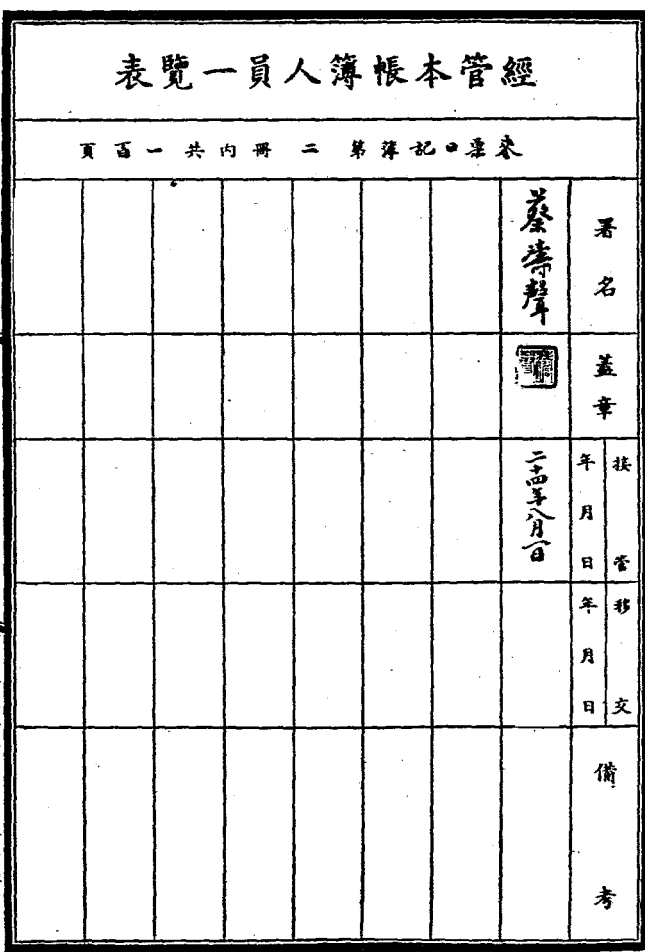 經管本帳簿人員一覽表
來票日記簿第二冊內共一百頁
署名
蔡濤聲
蓋章
接管
年月日
二十四年八月一日
移交
年月日
備考